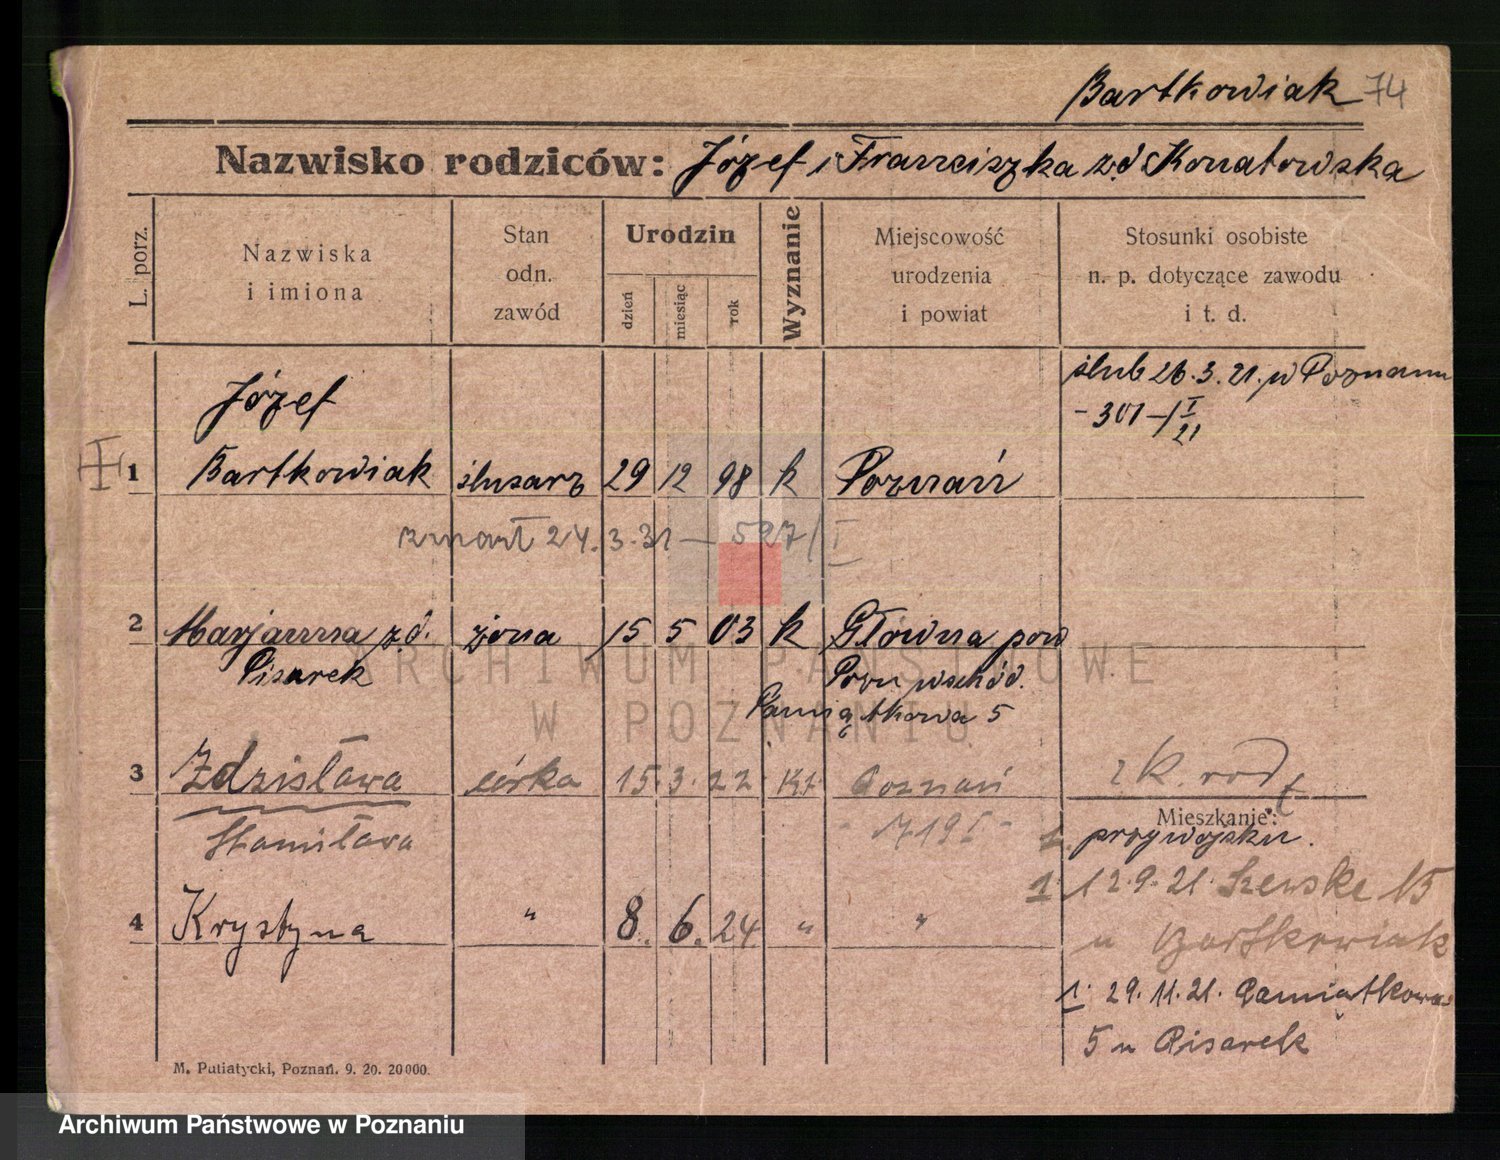 Bartkowiak 74
Nazwisko rodziców: Józef i Franciszka z.d. Konatowska
L. porz.
Nazwiska
i imiona
Stan
odn.
zawód
Urodzin
dzień
miesiąc
rok
Wyznanie
Miejscowość
urodzenia
i powiat
Stosunki osobiste
n. p. dotyczące zawodu
i t. d.
ślub 26.3.21. w Poznaniu
- 301 -/I 21
Józef
1 Bartkowiak ślusarz 29 12 98 k Poznań
zmarł 24.3.31 — 527/I
2 Marjanna z.d. żona 15 5 03 k Główna pow
Pisarek Pozn wschód.
Pamiątkowa 5
3 Zdzisława córka 15. 3. 22 kt. Poznań
Stanisława - 719 I -
k. rod
Mieszkanie:
przy wojsku.
1. 12.9.21. Szewska 15
u Bartkowiak
4 Krystyna " 8. 6. 24 " "
1. 29.11.21. Pamiątkowa
5 u Pisarek
M. Putiatycki, Poznań. 9. 20. 20000.
ARCHIWUM PAŃSTWOWE
W POZNANIU
Archiwum Państwowe w Poznaniu